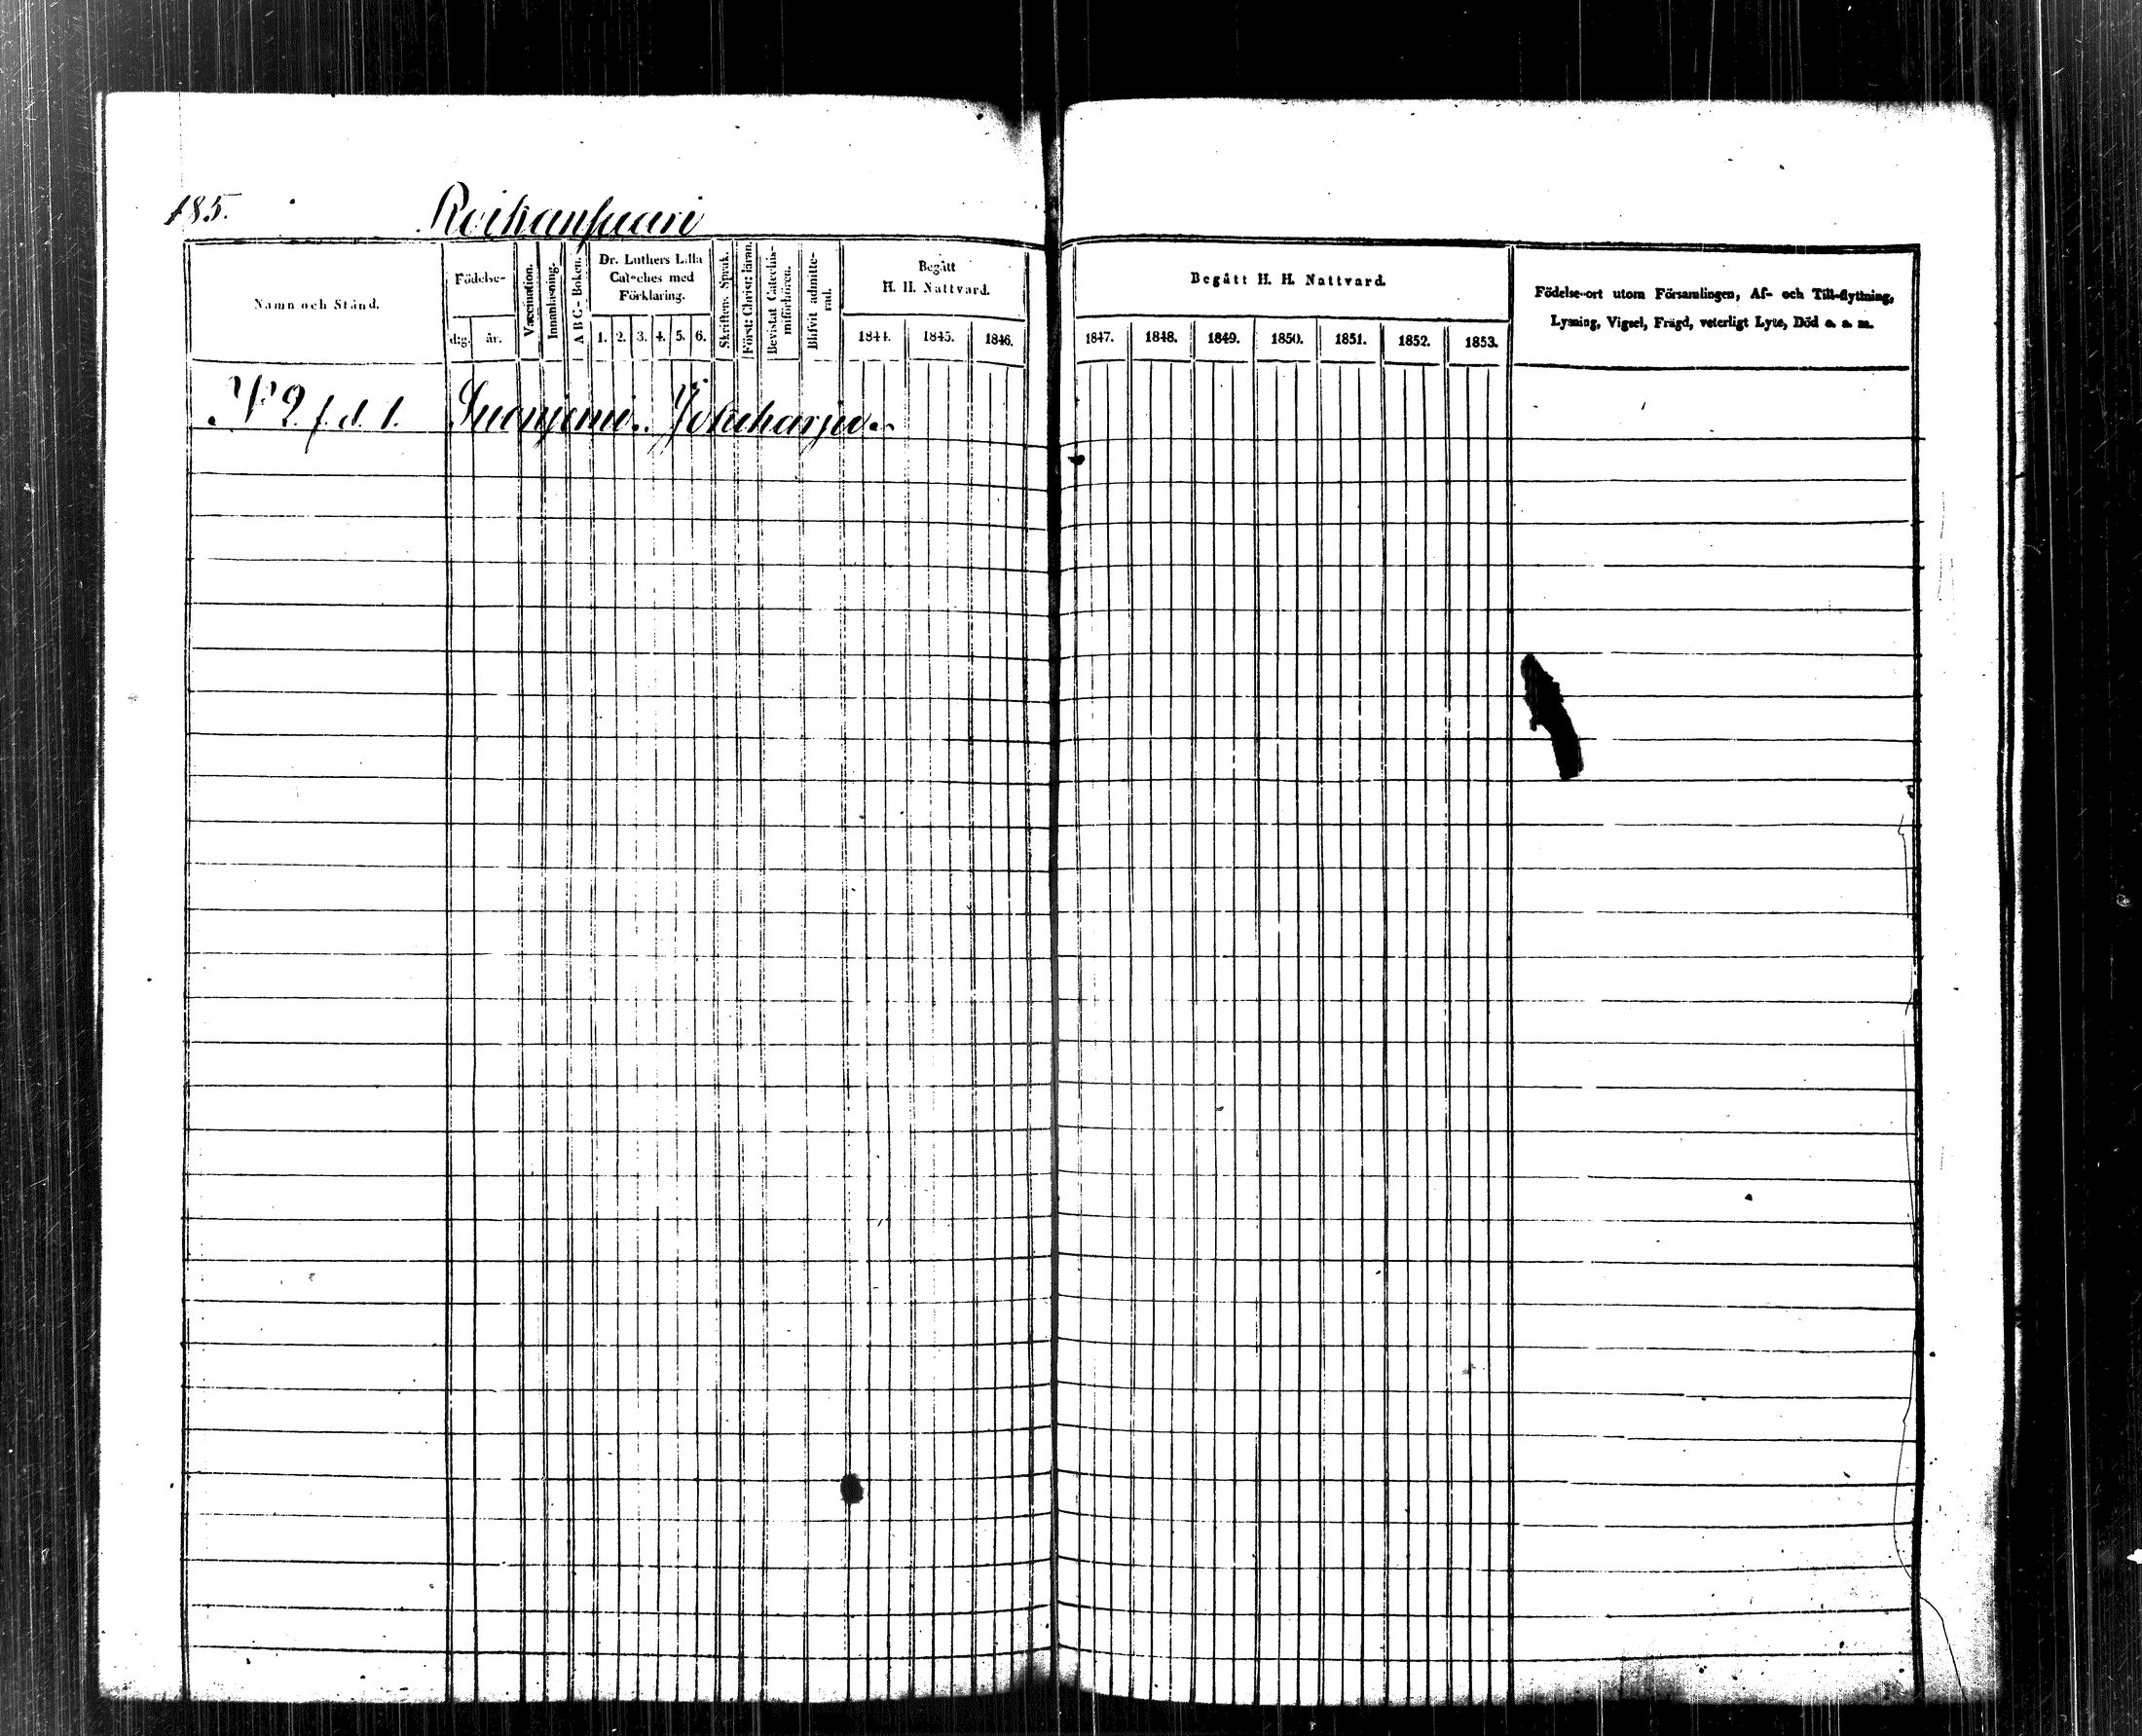 185.
Roikansuari
Namn och Stånd.
Födelse-
dag.
år.
Vaccination.
Innanläsning.
A B C - Boken.
Dr. Luthers Lilla
Cateches med
Förklaring.
1. 2. 3. 4. 5. 6.
Skriftens Språk.
Först: Christ: läran.
Bevistat Catechis-
miförhören.
Blifvit admitte-
rad.
Begått
H. H. Nattvard.
1844. 1845. 1846.
Begått H. H. Nattvard.
1847. 1848. 1849. 1850. 1851. 1852. 1853.
Födelse-ort utom Församlingen, Af- och Till-flyttning,
Lysning, Vigsel, Frägd, veterligt Lyte, Död o. s. m.
N° 2 f. d. 1. Suonjemi. Jokeharju.